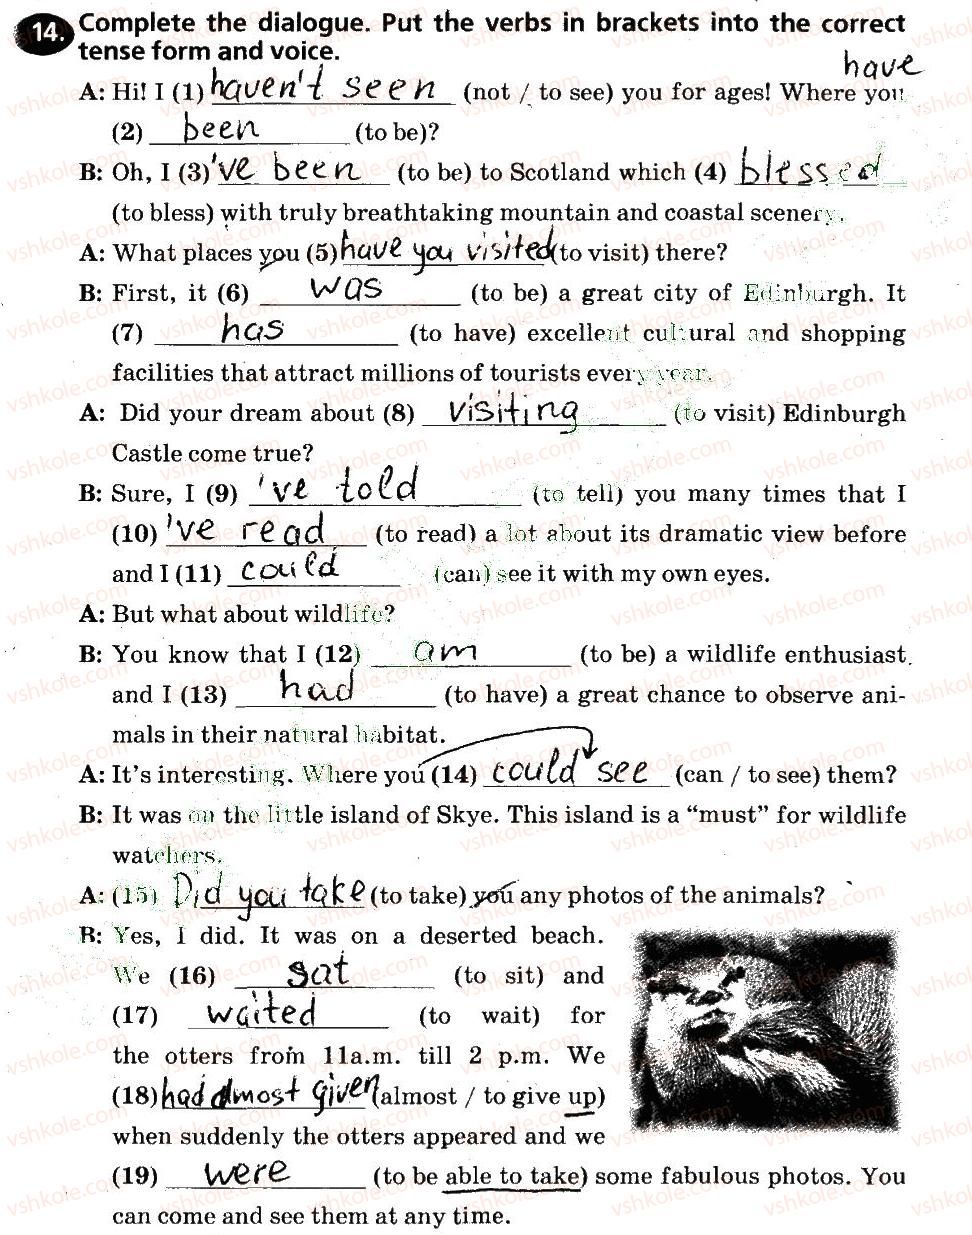 14. Complete the dialogue. Put the verbs in brackets into the correct
tense form and voice.
have
A: Hi! I (1) haven't seen (not / to see) you for ages! Where you
(2) been (to be)?
B: Oh, I (3) 've been (to be) to Scotland which (4) blessed
(to bless) with truly breathtaking mountain and coastal scenery.
A: What places you (5) have you visited (to visit) there?
B: First, it (6) was (to be) a great city of Edinburgh. It
(7) has (to have) excellent cultural and shopping
facilities that attract millions of tourists every year.
A: Did your dream about (8) visiting (to visit) Edinburgh
Castle come true?
B: Sure, I (9) 've told (to tell) you many times that I
(10) 've read (to read) a lot about its dramatic view before
and I (11) could (can) see it with my own eyes.
A: But what about wildlife?
B: You know that I (12) am (to be) a wildlife enthusiast
and I (13) had (to have) a great chance to observe ani-
mals in their natural habitat.
A: It's interesting. Where you (14) could see (can / to see) them?
B: It was on the little island of Skye. This island is a "must" for wildlife
watchers.
A: (15) Did you take (to take) you any photos of the animals?
B: Yes, I did. It was on a deserted beach.
We (16) sat (to sit) and
(17) waited (to wait) for
the otters from 11a.m. till 2 p.m. We
(18) had almost given (almost / to give up)
when suddenly the otters appeared and we
(19) were (to be able to take) some fabulous photos. You
can come and see them at any time.